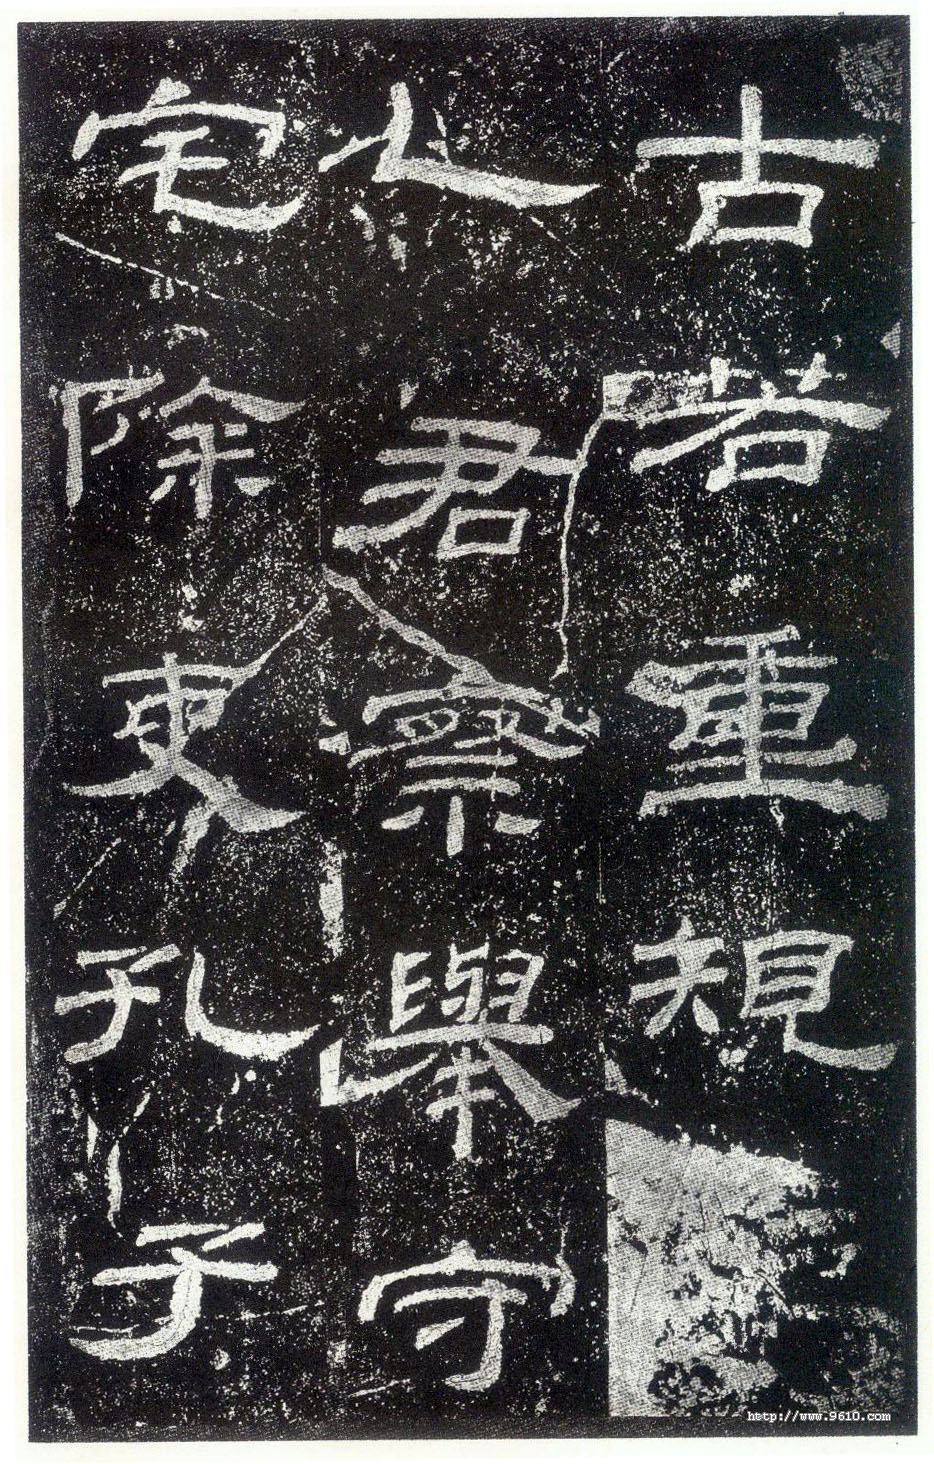 古若重規
之君察舉守
宅除吏孔子
http://www.9610.com